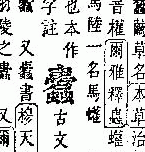 草名本草治
音權爾雅釋蟲蠸
馬陸一名馬
也本作
古文
字註
又叢書穆天
羽陵之蠹又爾